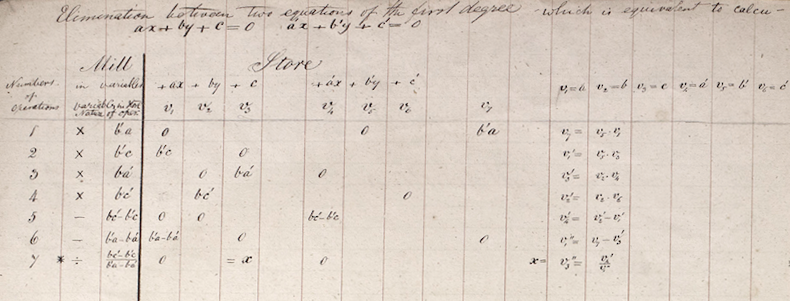 Elimination between two equations of the first degree - which is equivalent to calcu-
ax + by + c = 0 a'x + b'y + c' = 0
Mill Store
Numbers of operations in variables + ax + by + c + a'x + b'y + c' v₁=a v₂=b v₃=c v₄=a' v₅=b' v₆=c'
v₁ v₂ v₃ v₄ v₅ v₆ v₇
1 × b'a 0 0 b'a v₇ = v₅ · v₁
2 × b'c b'c 0 v₁' = v₅ · v₃
3 × ba' 0 ba' 0 v₃' = v₂ · v₄
4 × bc' bc' 0 v₂' = v₂ · v₆
5 – bc'–b'c 0 0 bc'–b'c v₄' = v₂'–v₁'
6 – b'a–ba' b'a–ba' 0 0 v₁'' = v₇–v₃'
7 * ÷ bc'–b'c/b'a–ba' 0 = x 0 x = v₃'' = v₄'/v₁''